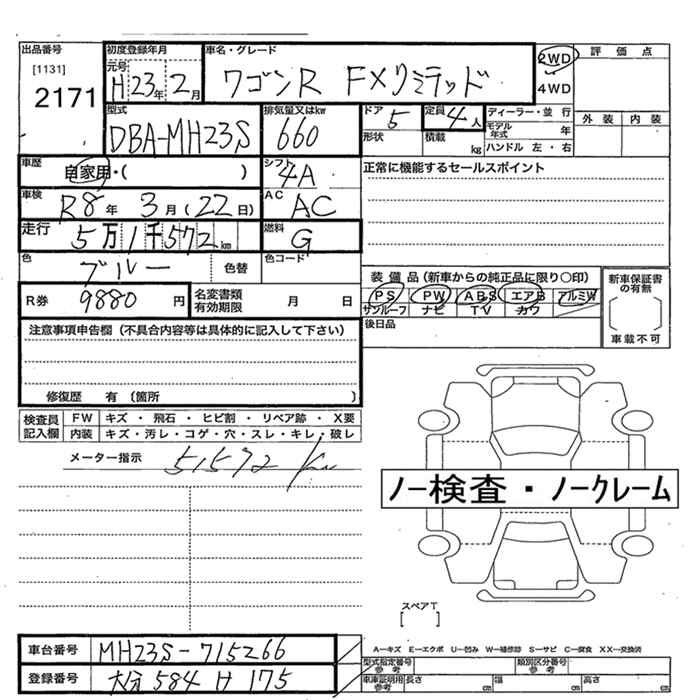 出品番号 [1131] 2171
初度登録年月 元号 H 23年 2月
車名・グレード ワゴンR FXリミテッド
2WD 4WD
評価点
外装 内装
型式 DBA-MH23S
排気量又はkw 660
ドア 5
定員 4人
形状 積載 kg
ディーラー・並行
モデル年式 年
ハンドル 左・右
車歴 自家用・( )
シフト 4A
正常に機能するセールスポイント
車検 R8年 3月(22日)
AC AC
走行 5万1千572km
燃料 G
色 ブルー 色替
色コード
R券 9880円
名変書類有効期限 月 日
装備品(新車からの純正品に限り○印)
PS PW ABS エアB アルミW
サンルーフ ナビ TV カワ
後日品
新車保証書の有無
[ ]
車載不可
注意事項申告欄(不具合内容等は具体的に記入して下さい)
修復歴 有 〔箇所 〕
検査員記入欄
FW キズ・飛石・ヒビ割・リペア跡・X要
内装 キズ・汚レ・コゲ・穴・スレ・キレ・破レ
メーター指示 51572 km
ノー検査・ノークレーム
スペアT
[ ]
車台番号 MH23S-715266
登録番号 大分 584 H 175
A―キズ E―エクボ U―凹み W―補修跡 S―サビ C―腐食 XX―交換済
型式指定番号 参考
類別区分番号 参考
車庫証明用 参考 長さ cm 幅 cm 高さ cm